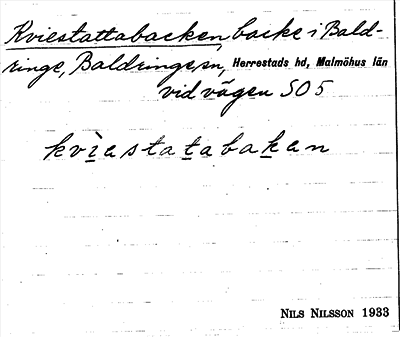 Kviestattabacken, backe i Bald-
ringe, Baldringe sn, Herrestads hd, Malmöhus län
vid vägen SO5
kvìestatabakan
NILS NILSSON 1933